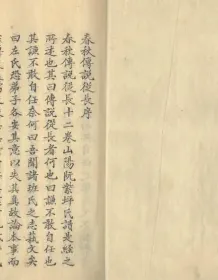 春秋傳說從長序
春秋傳說從長十二卷山陽阮紫坪氏讀是經之
所述也其曰傳說從長者何也曰謙不敢自任也
其謙不敢自任奈何曰吾聞諸班氏之志藝文矣
曰左氏恐弟子各安其意以失其真故論本事而